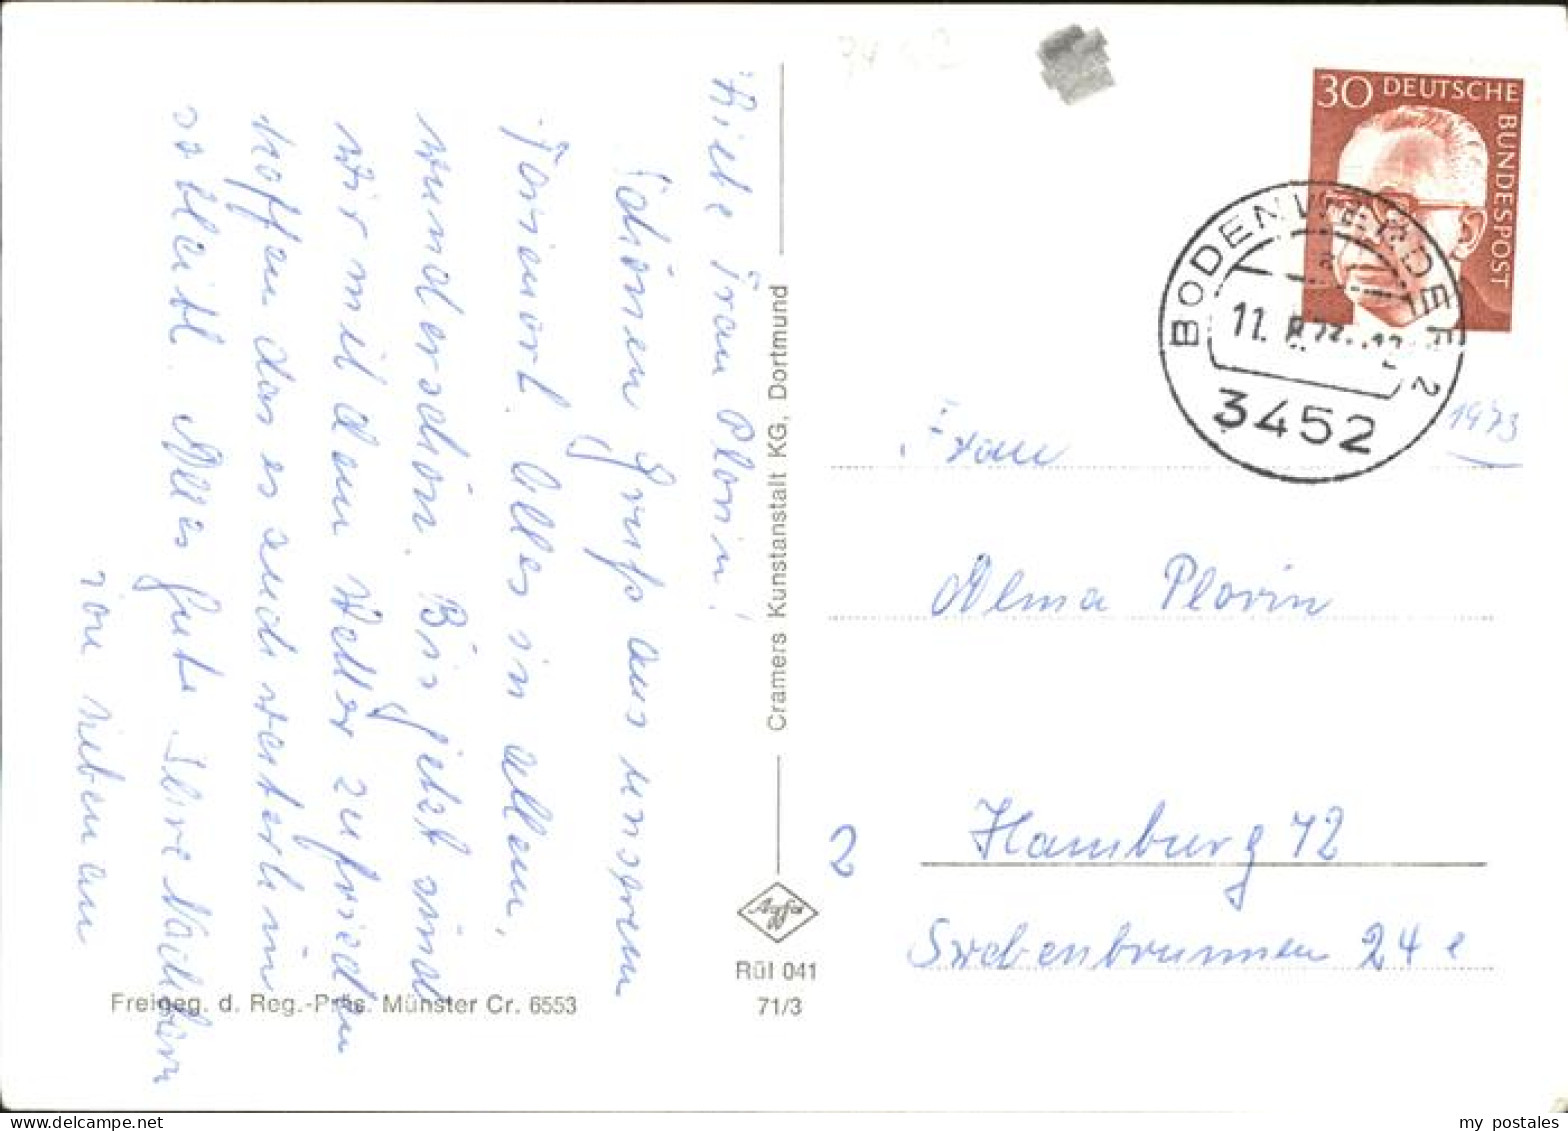 Liebe Frau Plovin!
Schönen Gruß aus unserem
Ferienort. Alles in allem,
wunderschön. Bis jetzt sind
wir mit dem Wetter zufrieden
hoffen das es auch weiterhin
so bleibt. Alles Gute Ihre Nachbarn
von nebenan
Cramers Kunstanstalt KG, Dortmund
Agfa
Rül 041
71/3
Freigeg. d. Reg.-Präs. Münster Cr. 6553
30 DEUTSCHE
BUNDESPOST
BODENWERDER 2
a
11.
3452
1973
Frau
Alma Plovin
2
Hamburg 72
Swebenbrunnen 24 e
my postales